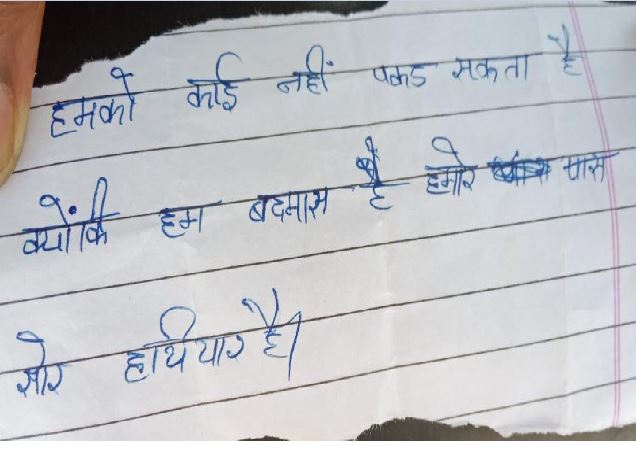 हमको कोई नहीं पकड सकता है
क्योंकि हम बदमास है हमारे पास
सोर हथियार है।